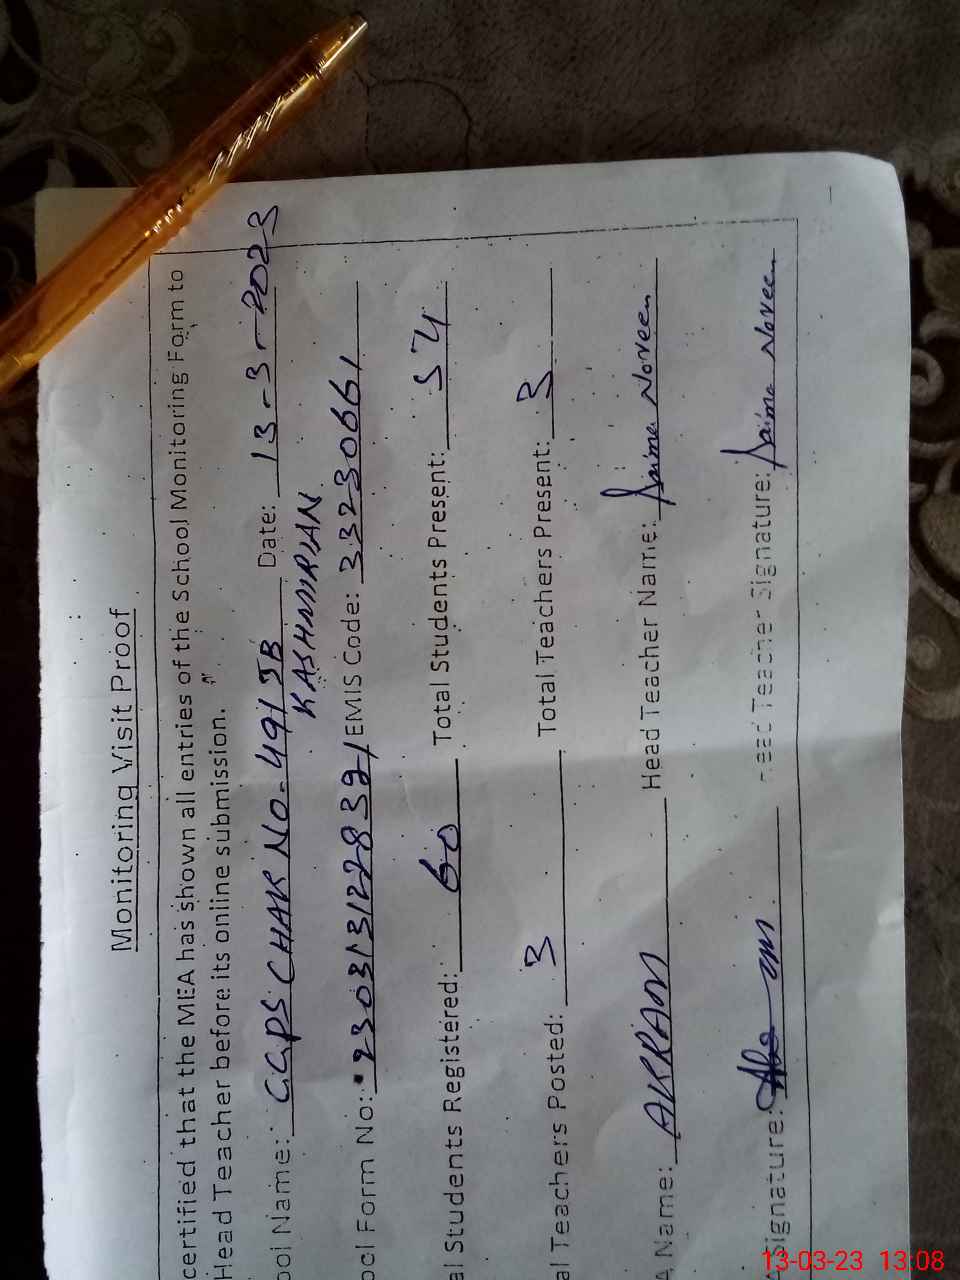 Monitoring Visit Proof
certified that the MEA has shown all entries of the School Monitoring Form to
Head Teacher before its online submission.
ool Name: GGPS CHAK NO-491 JB Date: 13-3-2023
KASHMIRIAN
ool Form No: 230313122832 EMIS Code: 33230661
al Students Registered: 60 Total Students Present: 54
al Teachers Posted: 3 Total Teachers Present: 3
A Name: AKRAM Head Teacher Name: Saima Noreen
Signature: Head Teacher Signature: Saima Noreen
13-03-23 13:08